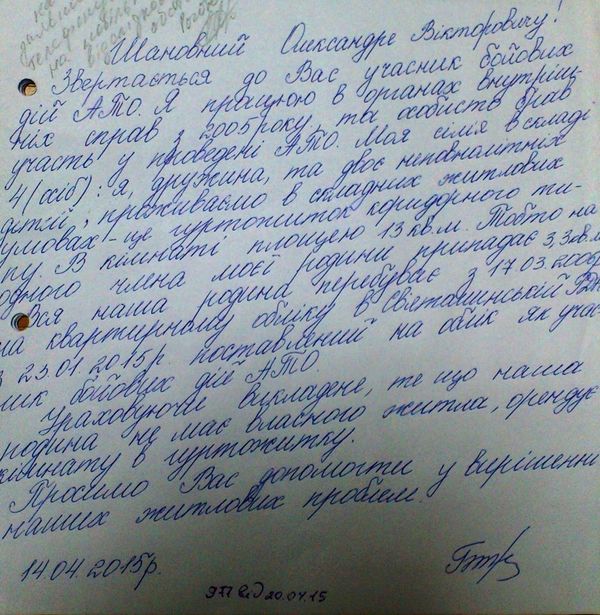 на
Шановний Олександре Вікторовичу!
Звертається до Вас учасник бойових
дій АТО. Я працюю в органах внутріш-
ніх справ з 2005 року, та особисто брав
участь у проведені АТО. Моя сімя в складі
4 (осіб): я, дружина, та двоє неповнолітніх
дітей, проживаємо в складних житлових
умовах - це гуртожиток коридорного ти-
пу. В кімнаті площею 13 кв.м. Тобто на
одного члена моєї родини припадає 3,3 кв.м
Вся наша родина перебуває з 17.03.2008р
на квартирному обліку в Святошинській РДА
з 23.01.2015р. поставлений на облік як учас-
ник бойових дій АТО.
Ураховуючи викладене, те що наша
родина не має власного житла, орендує
кімнату в гуртожитку.
Просимо Вас допомогти у вирішенні
наших житлових проблем.
14.04.2015р.
від 20.04.15